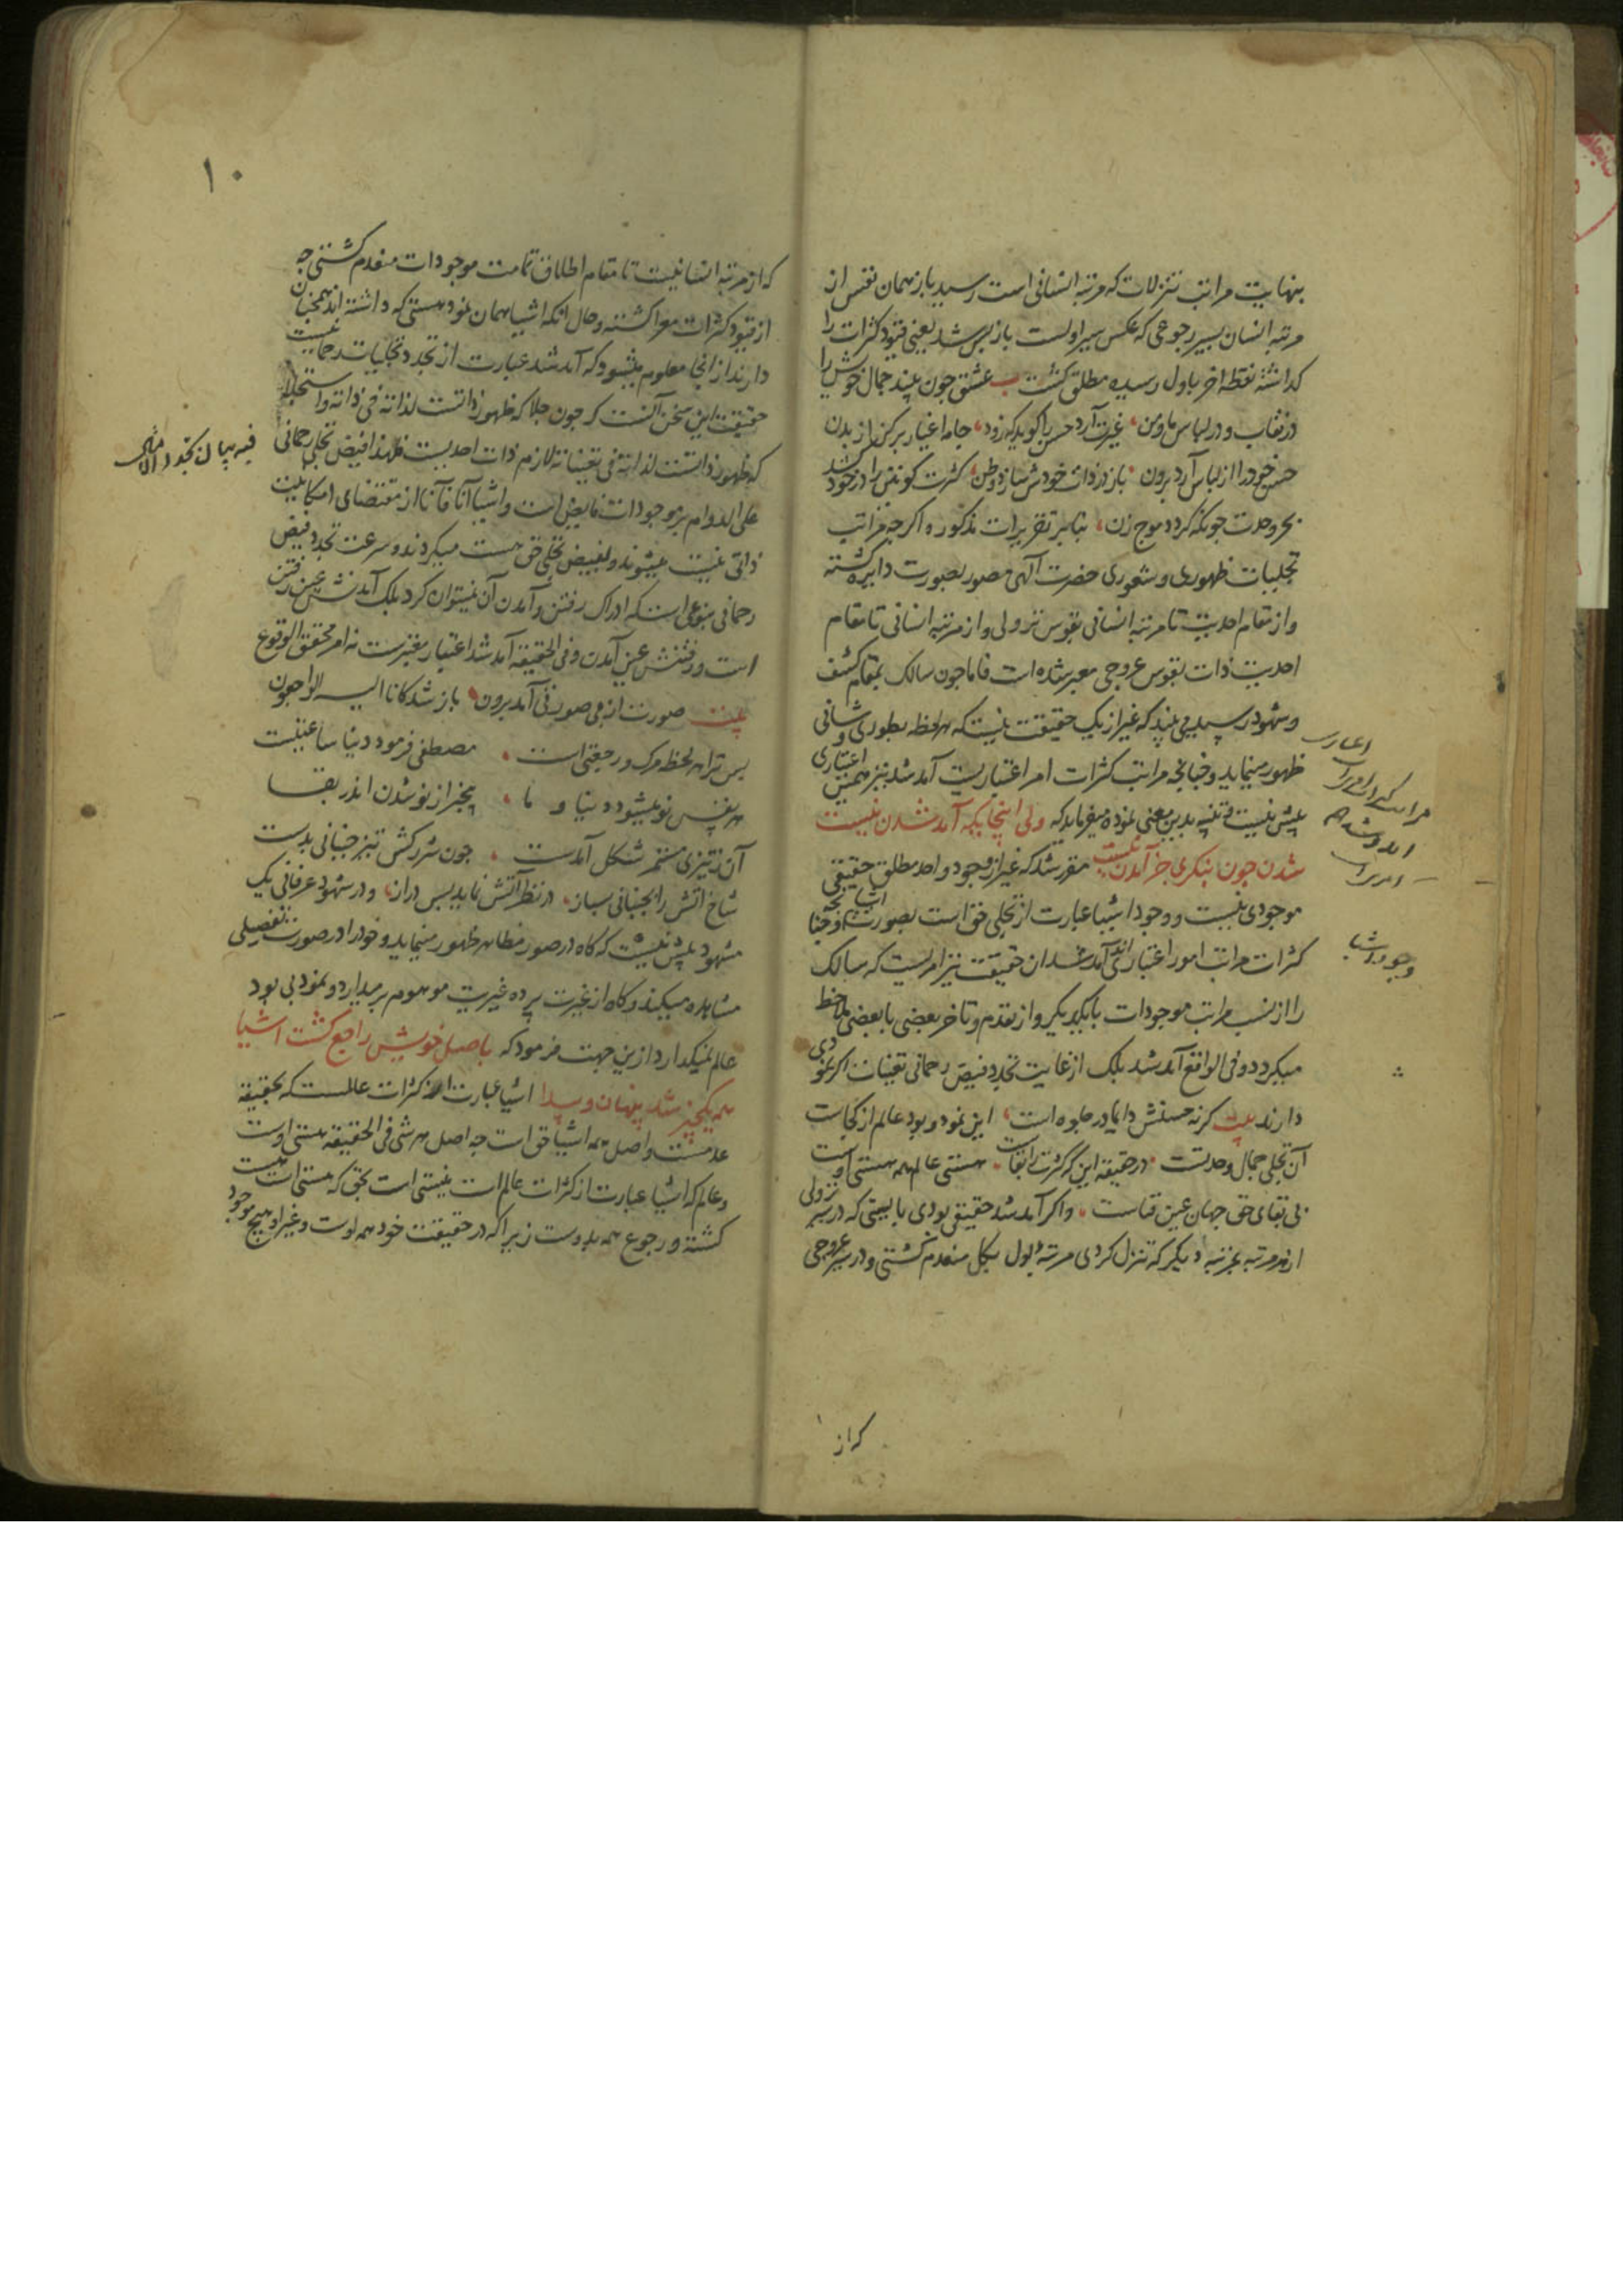 بنهایت مراتب تنزلات که مرتبه انسانی است رسید باز همان نفس از
مرتبه انسان بسیر رجوعی که عکس سیر اولست باز پس شد یعنی قیود کثرات را
کذاشته نقطه اخر باول رسیده مطلق کشت بیت عشق چون بیند جمال خویش را
در نقاب و در لباس ما و من، غیرت آرد حسن را کوید که زود، جامه اغیار برکن از بدن
حسن خود را از لباس آرد برون، باز در ذات خودش سازد وطن، کثرت کونین را در خود کشد
بحر وحدت چونکه کردد موج زن، بنابر تقریرات مذکوره اکرچه مراتب
تجلیات ظهوری و شعوری حضرت آلهی مصور بصورت دایره کشته
و از مقام احدیت تا مرتبه انسانی بقوس نزولی و از مرتبه انسانی تا مقام
احدیت ذات بقوس عروجی معبر شده است فاما چون سالک بمقام کشف
و شهود رسید می بیند که غیر از یک حقیقت نیست که هر لحظه بطوری و شانی
ظهور مینماید و چنانچه مراتب کثرات امر اعتباریست آمد شد نیز همین اعتباری
بیش نیست تنبیه بدین معنی نموده میفرماید که ولی اینجایکه آمد شدن نیست
شدن چون بنکری جز آمدن نیست مقرر شد که غیر از وجود واحد مطلق حقیقی
موجودی نیست و وجود اشیا عبارت از تجلی حق است بصورت اشیا و چنانچه
کثرات مراتب امور اعتباری اند آمد شد ان حقیقت نیز امریست که سالک
را از نسب مراتب موجودات بایکدیکر و از تقدم و تاخر بعضی با بعضی ملاحظ
میکردد و فی الواقع آمد شد بلک از غایت تجدد فیض رحمانی تعینات اکر نمودی
دارند بیت کرنه حسنش دایما در جلوه است، این نمود و بود عالم از کجاست
آن تجلی جمال وحدتست، در حقیقة این که کثرت را بقاست، هستی عالم همه هستی اوست
بی بقای حق جهان عین فناست، و اکر آمد شد حقیقی بودی بایستی که در سیر نزولی
از هر مرتبه بمرتبه دیکر که تنزل کردی مرتبه اول بکل منعدم کشتی و در سیر عروجی
که از
وجود اشیا
۱۰
که از مرتبه انسانیت تا مقام اطلاق تمامت موجودات منعدم کشتی چه
از قیود کثرات معرا کشته و حال انکه اشیا همان نمود هستی که داشته اند همچنان
دارند از انجا معلوم میشود که آمد شد عبارت از تجدد تجلیات رحمانیست
حقیقت این سخن آنست که چون جلا که ظهور ذاتست لذاته فی ذاته و استجلا
که ظهور ذاتست لذاته فی تعیناته لازم ذات احدیست فلهذا فیض تجلی رحمانی
علی الدوام بر موجودات فایض است و اشیا آنا فآنا از مقتضای امکانیت
ذاتی نیست میشوند و بفیض تجلی حق هست میکردند و سرعت تجدد فیض
رحمانی بنوعی است که ادراک رفتن و آمدن آن نمیتوان کرد بلک آمدنش عین رفتن
است و رفتنش عین آمدن و فی الحقیقه آمد شد اعتبار معتبرست نه امر محقق الوقوع
بیت صورت از بی صورتی آمد برون، باز شد کانا الیه راجعون
پس ترا هر لحظ مرک و رجعتی است، مصطفی فرمود دنیا ساعتیست
هر نفس نو میشود دنیا و ما، بیخبر از نو شدن اندر بقا
آن ز تیزی مستمر شکل آمدست، چون شرر کش تیز جنبانی بدست
شاخ اتش را بجنبانی بساز، در نظر آتش نماید بس دراز، و در شهود عرفانی یک
مشهود بیش نیست که کاه در صور مظاهر ظهور مینماید و خود را در صورت تفصیلی
مشاهده میکند و کاه از غیرت پرده غیریت موهوم بر میدارد و نمود بی بود
عالم نمیکذارد ازین جهت فرمود که باصل خویش راجع کشت اشیا
همه یکچیز شد پنهان و پیدا اشیا عبارت از کثرات عالمست که بحقیقة
عدمست و اصل همه اشیا حق است چه اصل هر شی فی الحقیقه هستی اوست
و عالم که اشیا عبارت از کثرات عالم است نیستی است بحق که هستی است هست
کشته و رجوع همه بدوست زیرا که در حقیقت خود همه اوست و غیر او هیچ موجود
فیه بیان تجدد الامثال